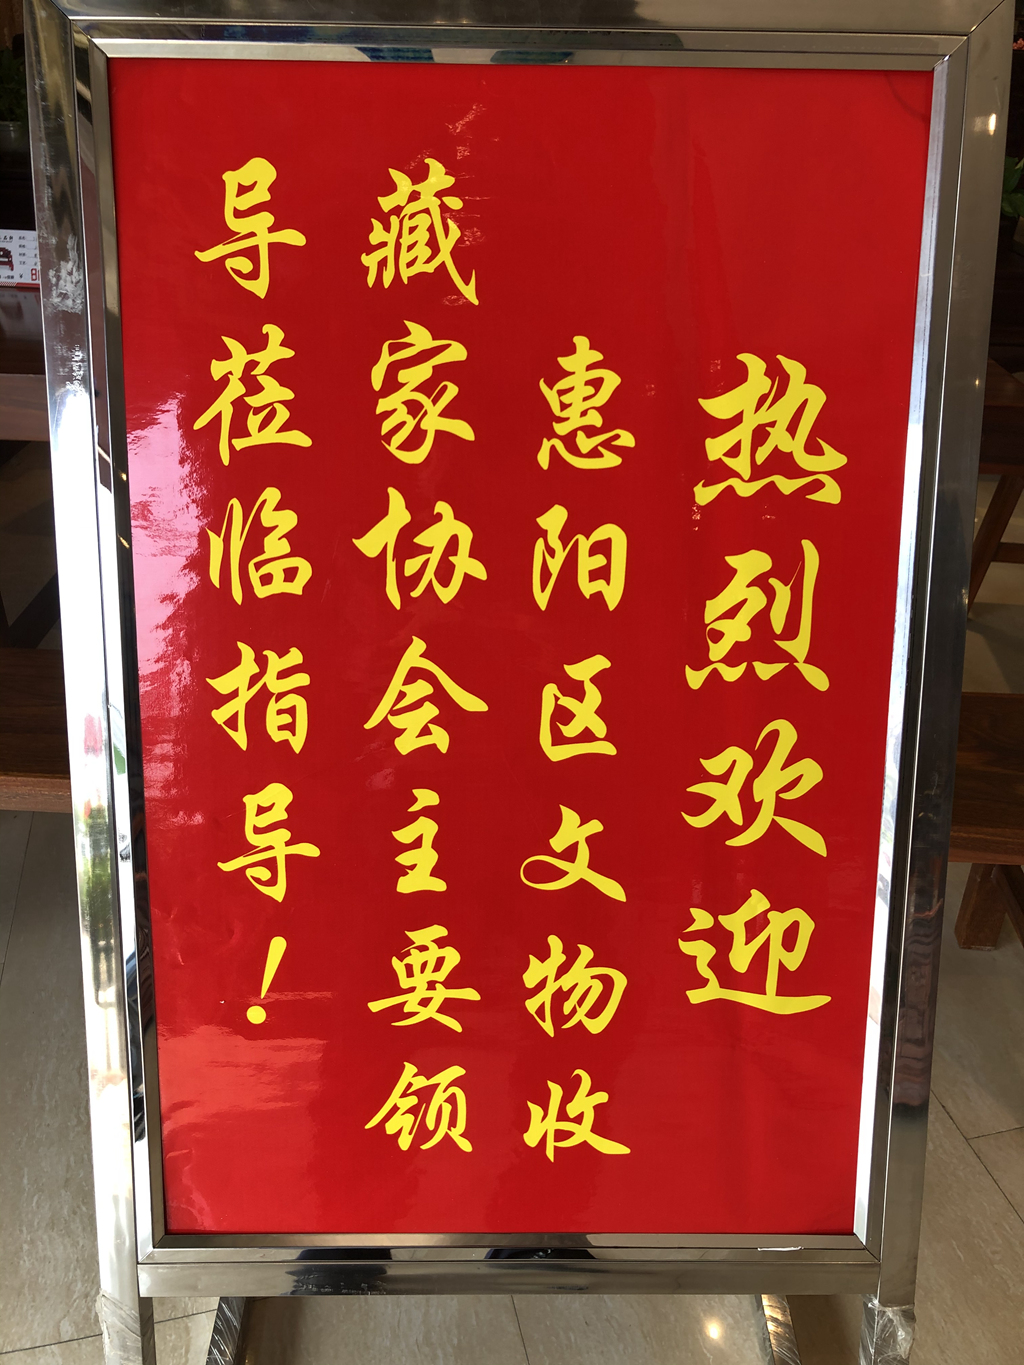 热烈欢迎
惠阳区文物收
藏家协会主要领
导莅临指导！